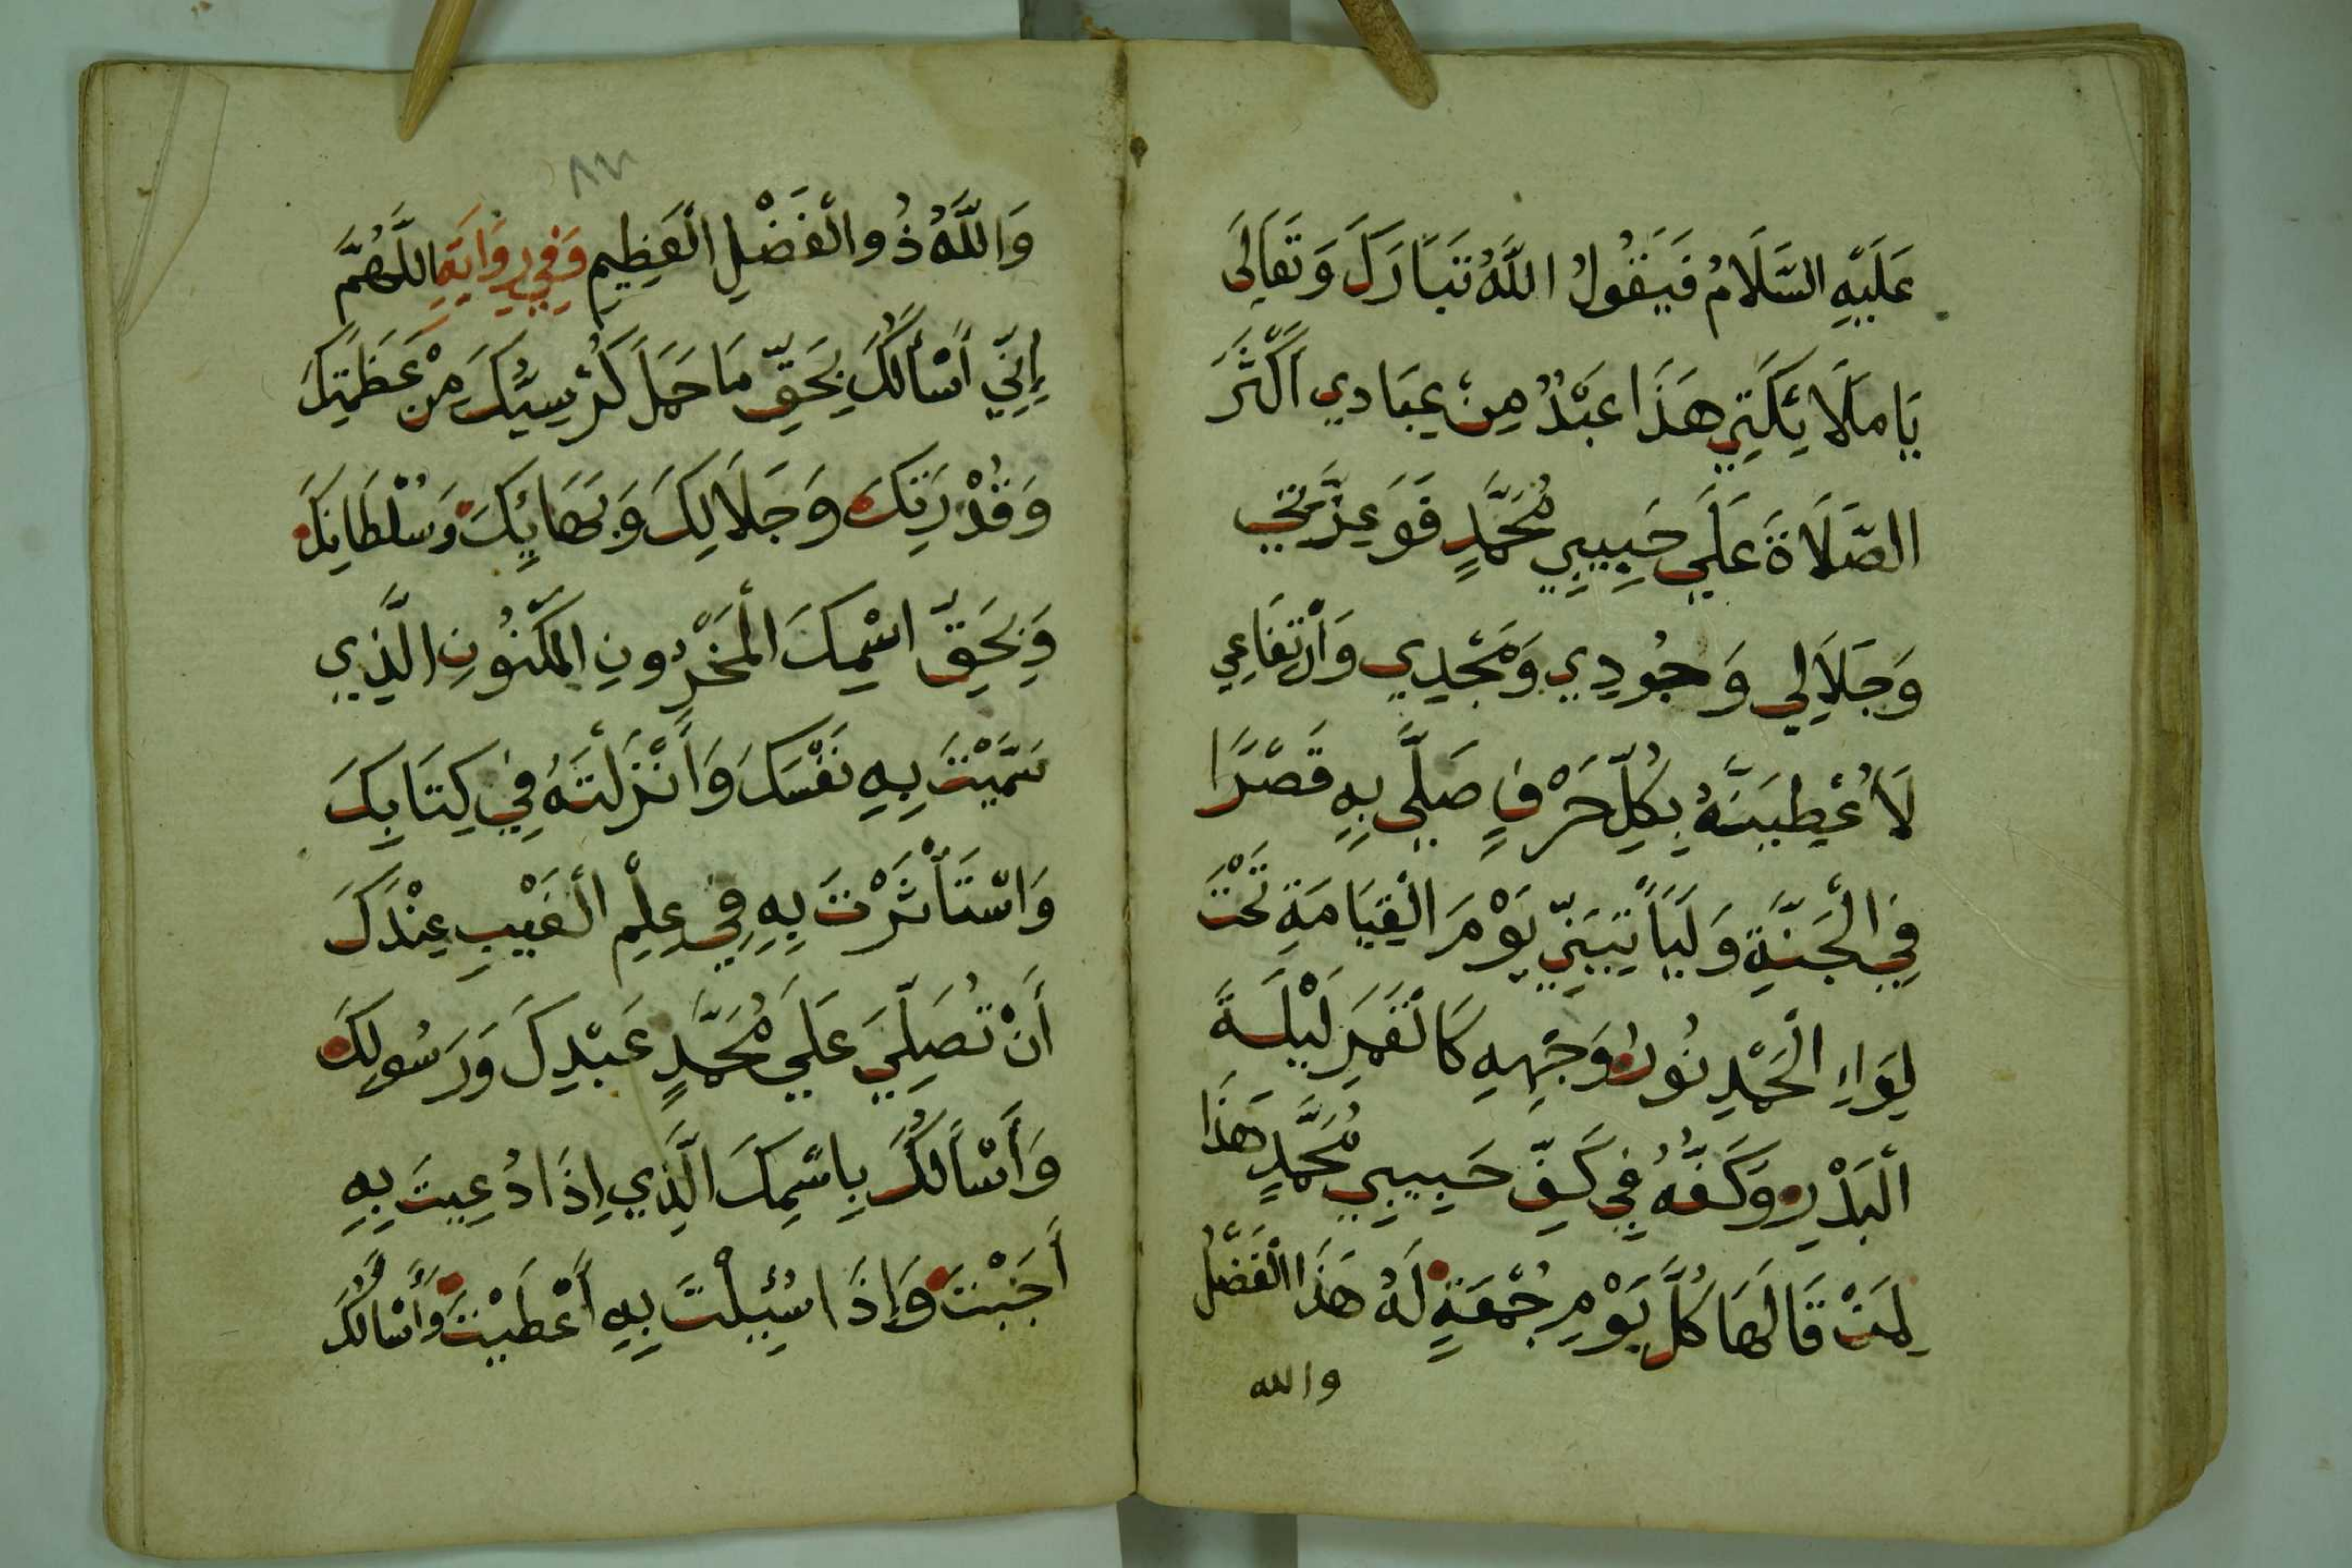 عَلَيْهِ السَّلَامُ فَيَقُولُ اللَّهُ تَبَارَكَ وَتَعَالَى
يَا مَلَائِكَتِي هَذَا عَبْدٌ مِنْ عِبَادِي أَكْثَرَ
الصَّلَاةَ عَلَي حَبِيبِي مُحَمَّدٍ فَوَعِزَّتِي
وَجَلَالِي وَجُودِي وَمَجْدِي وَارْتِفَاعِي
لَأُعْطِيَنَّهُ بِكُلِّ حَرْفٍ صَلَّى بِهِ قَصْرًا
فِي الْجَنَّةِ وَلَيَأْتِيَنِّي يَوْمَ الْقِيَامَةِ تَحْتَ
لِوَاءِ الْحَمْدِ نُورُ وَجْهِهِ كَالْقَمَرِ لَيْلَةَ
الْبَدْرِ وَكَفُّهُ فِي كَفِّ حَبِيبِي مُحَمَّدٍ هَذَا
لِمَنْ قَالَهَا كُلَّ يَوْمِ جُمْعَةٍ لَهُ هَذَا الْفَضْلُ
والله
٨٧
وَاللَّهُ ذُو الْفَضْلِ الْعَظِيمِ وَفِي رِوَايَةِ اللَّهُمَّ
إِنِّي أَسْأَلُكَ بِحَقِّ مَا حَمَلَ كُرْسِيُّكَ مِنْ عَظَمَتِكَ
وَقُدْرَتِكَ وَجَلَالِكَ وَبَهَائِكَ وَسُلْطَانِكَ
وَبِحَقِّ اسْمِكَ الْمَخْزُونِ الْمَكْنُونِ الَّذِي
سَمَّيْتَ بِهِ نَفْسَكَ وَأَنْزَلْتَهُ فِي كِتَابِكَ
وَاسْتَأْثَرْتَ بِهِ فِي عِلْمِ الْغَيْبِ عِنْدَكَ
أَنْ تُصَلِّيَ عَلَي مُحَمَّدٍ عَبْدِكَ وَرَسُولِكَ
وَأَسْأَلُكَ بِاسْمِكَ الَّذِي إِذَا دُعِيتَ بِهِ
أَجَبْتَ وَإِذَا سُئِلْتَ بِهِ أَعْطَيْتَ وَأَسْأَلُكَ